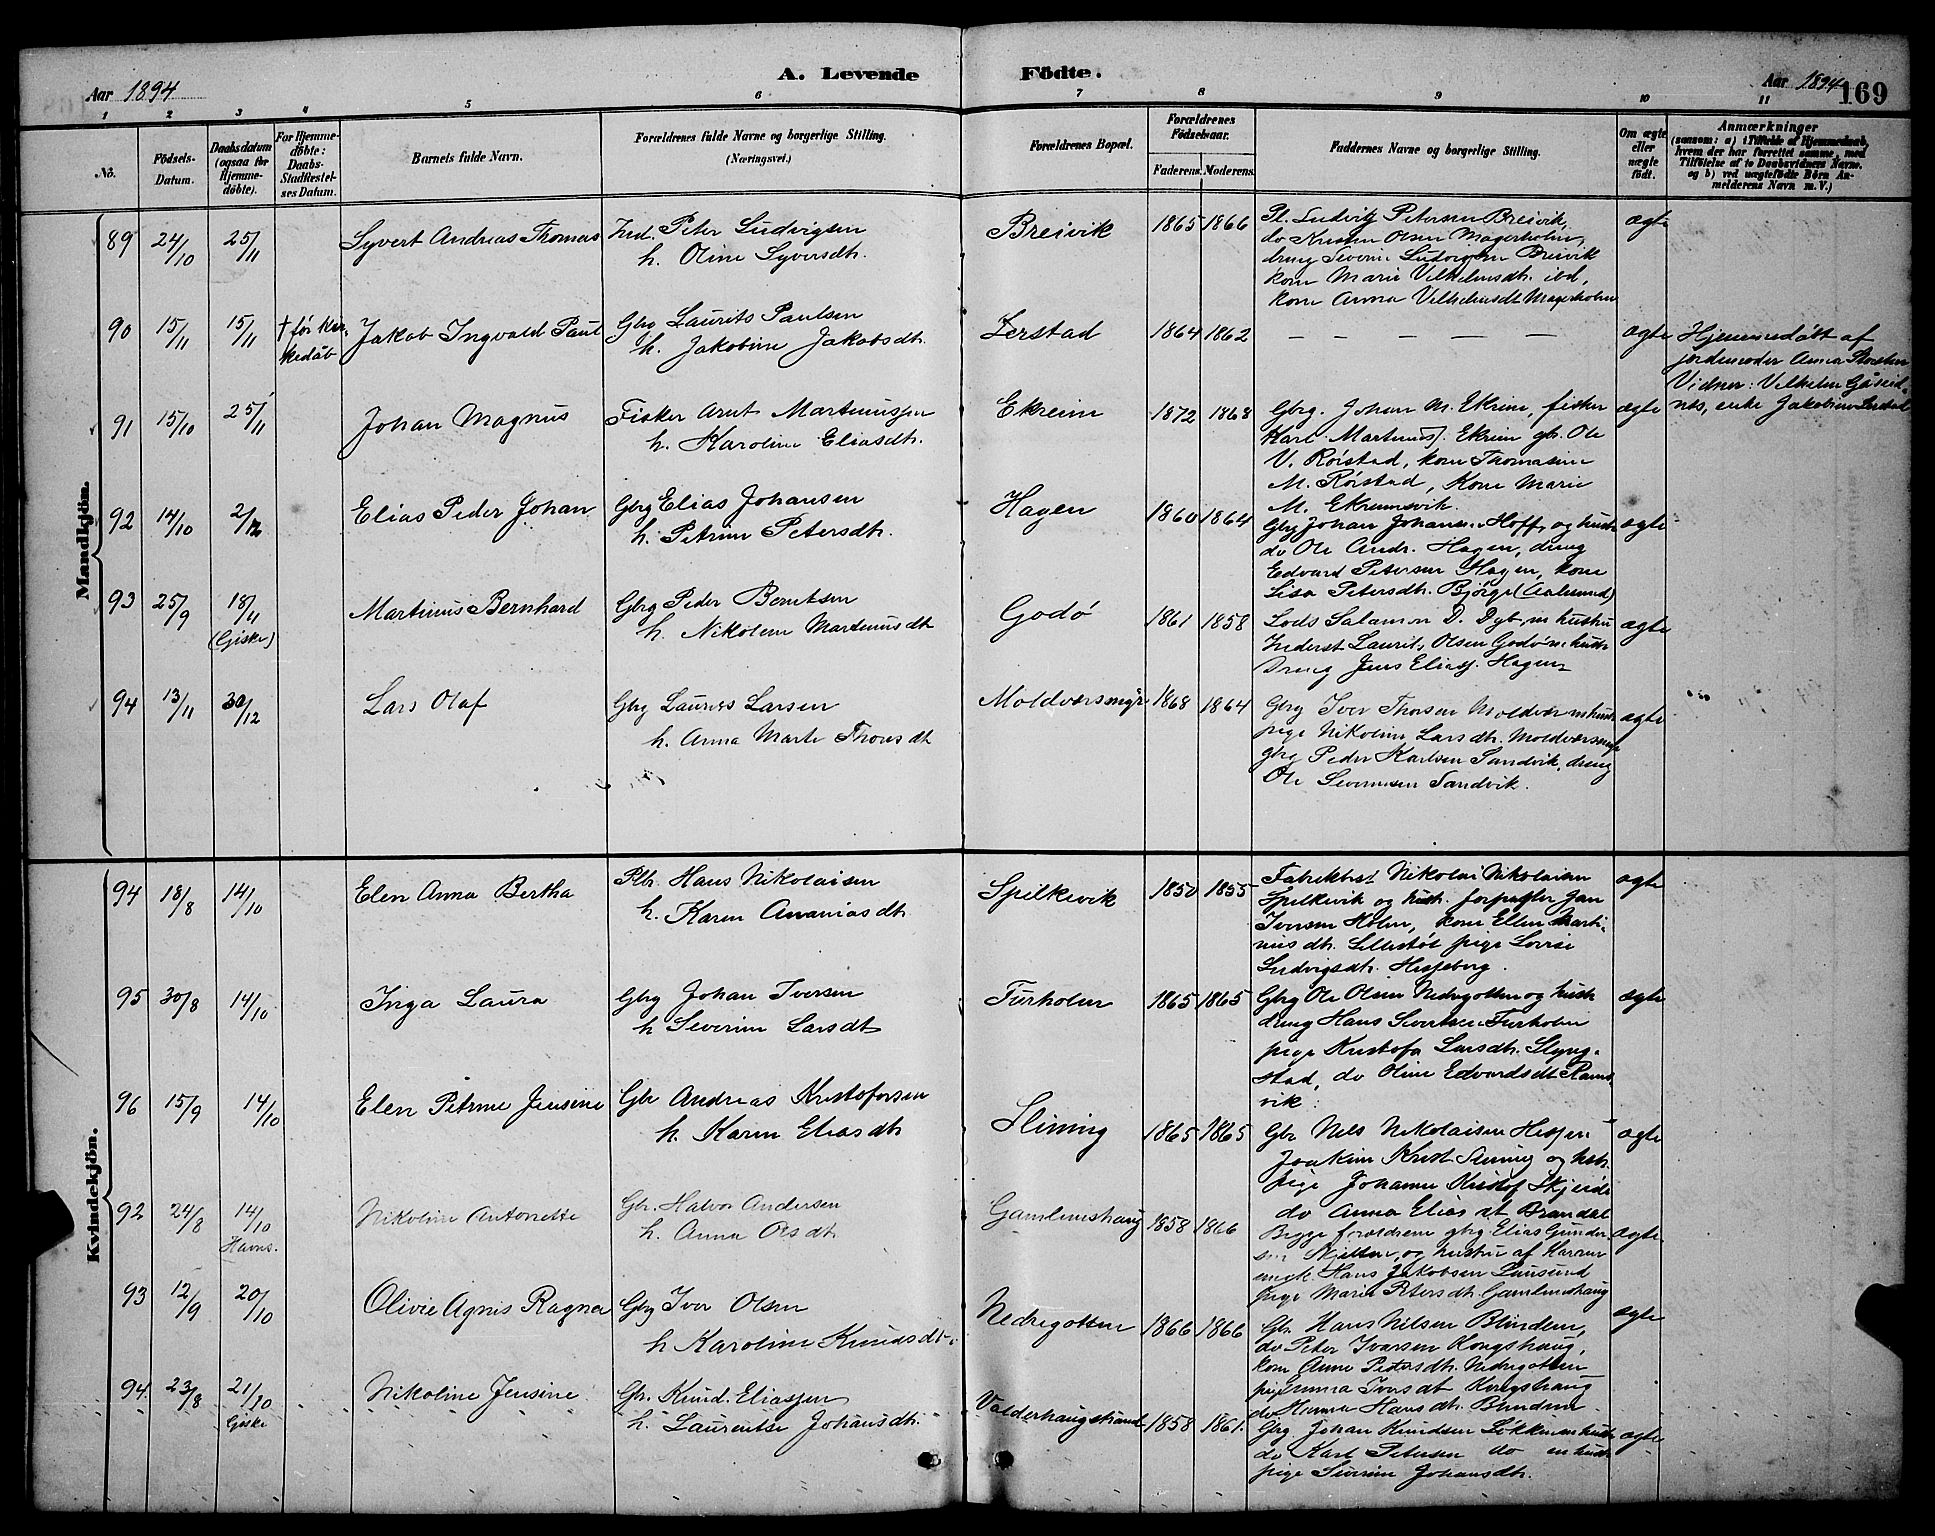 A. Levende Födte.
Aar 1894
Aar 1894
169
1 2 3 4 5 6 7 8 9 10 11
No.
Födsels-Datum.
Daabsdatum (ogsaa for Hjemmedöbte).
For Hjemmedöbte: Daabs-Stadfæstelses Datum.
Barnets fulde Navn.
Forældrenes fulde Navne og borgerlige Stilling. (Næringsvei.)
Forældrenes Bopæl.
Forældrenes Födselsaar.
Faderens. Moderens.
Faddernes Navne og borgerlige Stilling.
Om ægte eller uægte födt.
Anmærkninger
(saasom: a) i Tilfælde af Hjemmedaab, hvem der har forrettet samme, med Tilföielse af to Daabsvidners Navne. og b) ved uægtefödte Börn Anmelderens Navn m. V.)
Mandkjön.
89 24/10 25/11 Syvert Andreas Thomas
Ind. Peter Ludvigsen
h. Oline Syversdtr.
Breivik 1865 1866
Pl. Ludvig Petersen Breivik,
do Kristen Olsen Magerholm,
dreng Severin Ludvigsen Breivik
kone Marie Vilhelmsdtr. ibd,
kone Anna Vilhelmsdt Magerholm
ægte
90 15/11 15/11 † før kirkedåb Jakob Ingvald Paul
Gbg Laurits Paulsen
h. Jakobine Jakobsdtr.
Lerstad 1864 1862
— — — — —
ægte
Hjemmedøbt af
jordemoder Anna
Vidner: Vilhelm
enke Jakobine Lerstad
91 15/10 25/11 Johan Magnus
Fisker Arnt Martinussen
h. Karoline Eliasdtr.
Ekreim 1872 1868
Gbrg. Johan M. Ekreim, fisker
Karl Martinus. Ekreim gbr. Ole
V. Rørstad, kone Thomasine
M. Rørstad, Kone Marie
M. Ekremsvik.
ægte
92 14/10 2/12 Elias Peder Johan
Gbrg Elias Johansen
h. Petrine Petersdtr.
Hagen 1860 1864
Gbrg Johan Johans. Hoff og hustr
do Ole Andr. Hagen, dreng
Edvard Petersen Hagen, kone
Lisa Petersdtr. Bjørge (Aalesund)
ægte
93 25/9 18/11 (Giske) Martinus Bernhard
Gbrg Peder Berntsen
h. Nikoline Martinusdt
Godø 1861 1858
Lods Salamon D. Dyb m hustru
Inderst Laurits Olsen Godø m hustr
Dreng Jens Eliass. Hagen
ægte
94 13/11 30/12 Lars Olaf
Gbrg Laurits Larsen
h. Anna Marte Thorsdt
Moldværsmyr 1868 1864
Gbrg Iver Thorsen Moldvær m hustr
pige Nikoline Larsdtr. Moldværsmyr
gbrg Peder Karlsen Sandvik, dreng
Ole Severinsen Sandvik.
ægte
Kvindekjön.
94 18/8 14/10 Elen Anna Bertha
Plbr. Hans Nikolaisen
h. Karen Ananiasdtr.
Spilkevik 1850 1855
Fabrikbest Nikolai Nikolaisen
Spilkevik og hustr. forpagter Jan
Iversen Holm, kone Ellen Martinusdtr. Lillestøl pige Lovise
Ludvigsdtr. Hesseberg.
ægte
95 30/8 14/10 Inga Laura
Gbrg Johan Iversen
h Severine Larsdt
Furholm 1865 1865
Gbrg Ole Olsen Nedregotten og hustr
dreng Hans Sivertsen Furholm
pige Kristofa Larsdtr. Slyngstad, do Oline Edvardsdt Ramsvik.
ægte
96 15/9 14/10 Elen Petrine Jensine
Gbr Andreas Kristofersen
h. Karen Eliasdtr
Slining 1865 1865
Gbr Nels Nikolaisen Hessen
Joakim Krist Slining og hstr.
pige Johanne Kristof
do Anna Elias dt Brandal
ægte
92 24/8 14/10 Havns. Nikoline Antonette
Gbr. Halvor Andersen
h. Anna Olsdt
Gamlemshaug 1858 1866
Begge forældrene gbrg Elias Gundersen Skjelten, og hustru af Haram
ungk. Hans Jakobsen Lausund
Pige Marie Petersdtr. Gamlemshaug
ægte
93 12/9 20/10 Olivie Agnes Ragna
Gbrg Iver Olsen
h Karoline Knudsdt
Nedregotten 1866 1866
Gbr. Hans Nilsen Blindem,
do Peter Iversen Kongshaug,
kone Anne Petersdtr. Nedregotten
pige Emma Iversdt Kongshaug
do Hanna Hansdtr. Blindem.
ægte
94 23/8 21/10 Giske Nikoline Jensine
Gbr. Knud Eliassen
h. Laurentse Johansdtr.
Valderhaugstrand 1858 1861.
Gbrg Johan Knudsen Løkken m hustr
do Karl Petersen do m hustr
pige Severine Johansdtr.
ægte